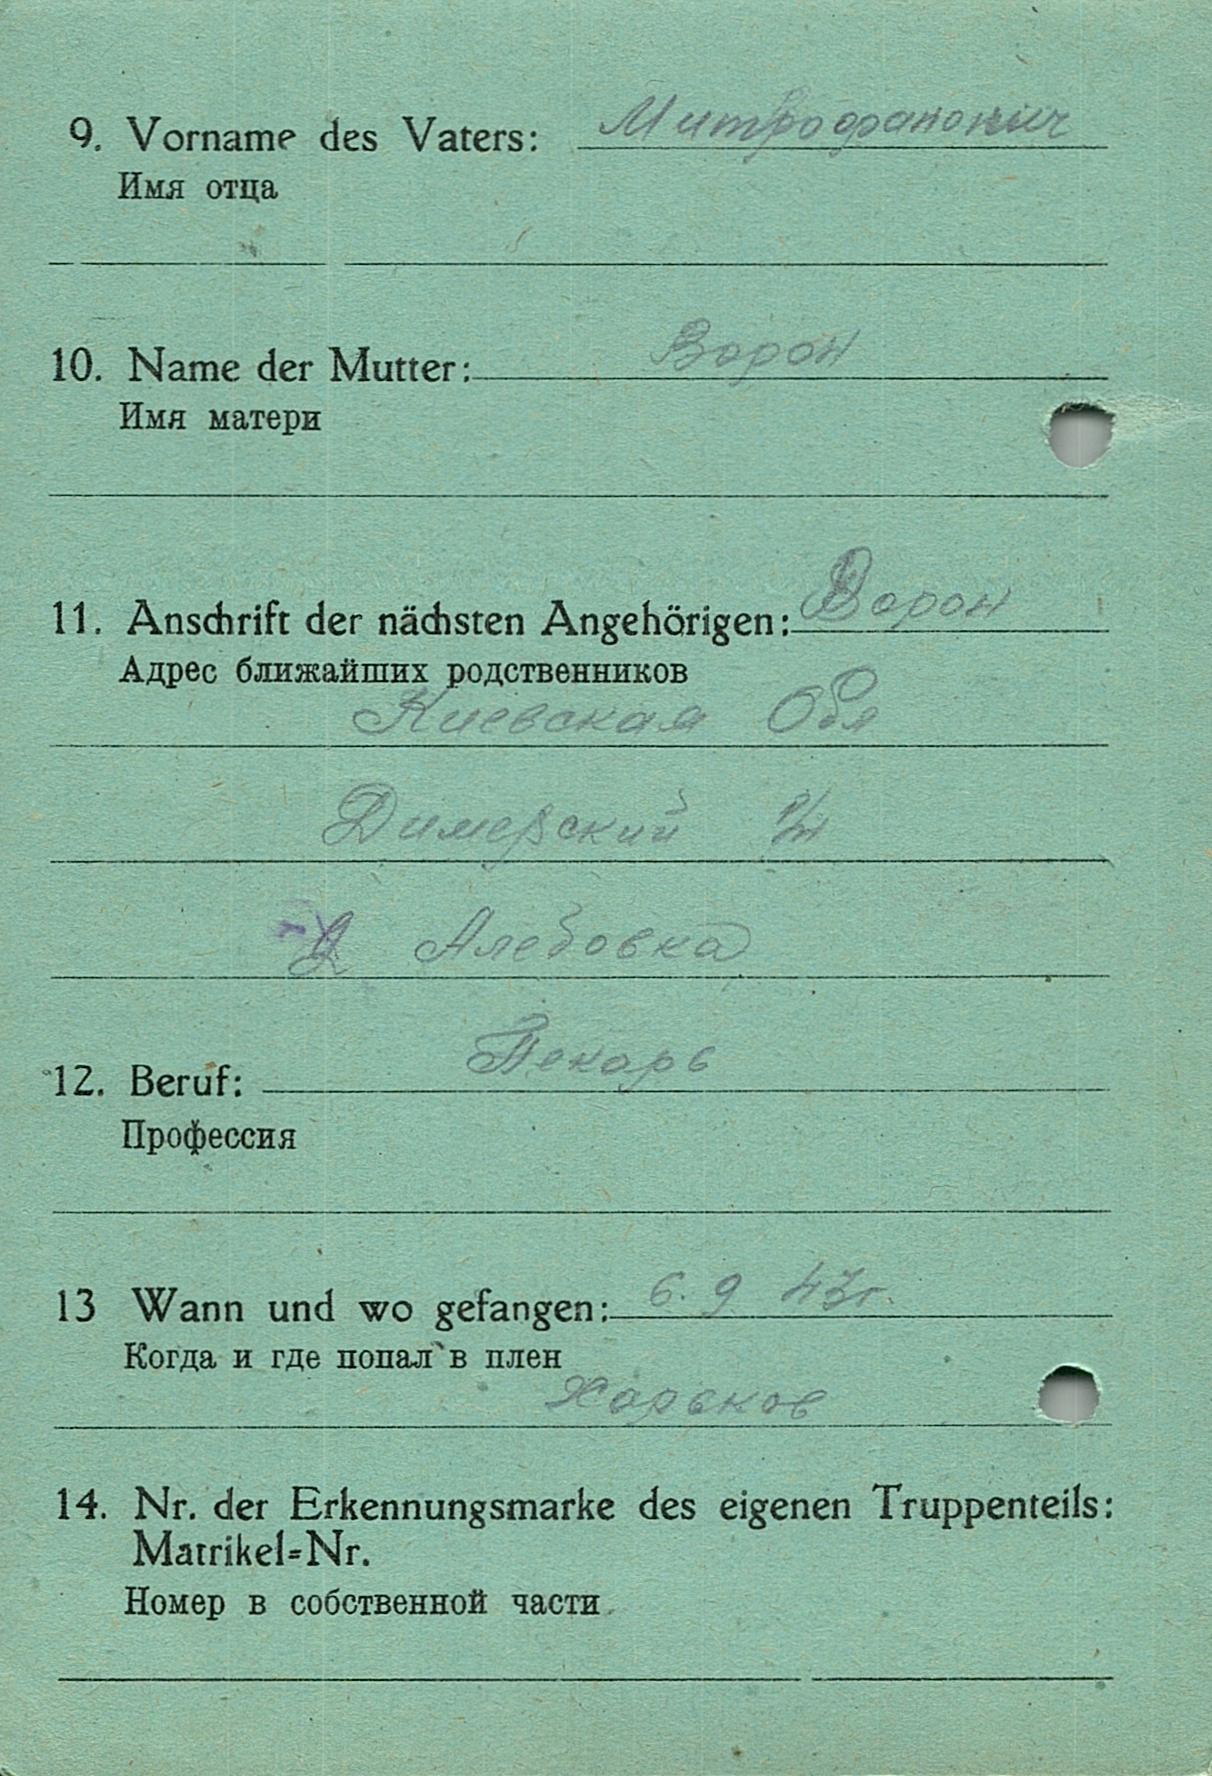 9. Vorname des Vaters: Митрофанович
Имя отца
10. Name der Mutter: Ворон
Имя матери
11. Anschrift der nächsten Angehörigen: Ворон
Адрес ближайших родственников
Киевская Обл
Димерский р/н
Алебовка
12. Beruf: Пекарь
Профессия
13 Wann und wo gefangen: 6. 9 43г.
Когда и где попал в плен
Харьков
14. Nr. der Erkennungsmarke des eigenen Truppenteils:
Matrikel=Nr.
Номер в собственной части